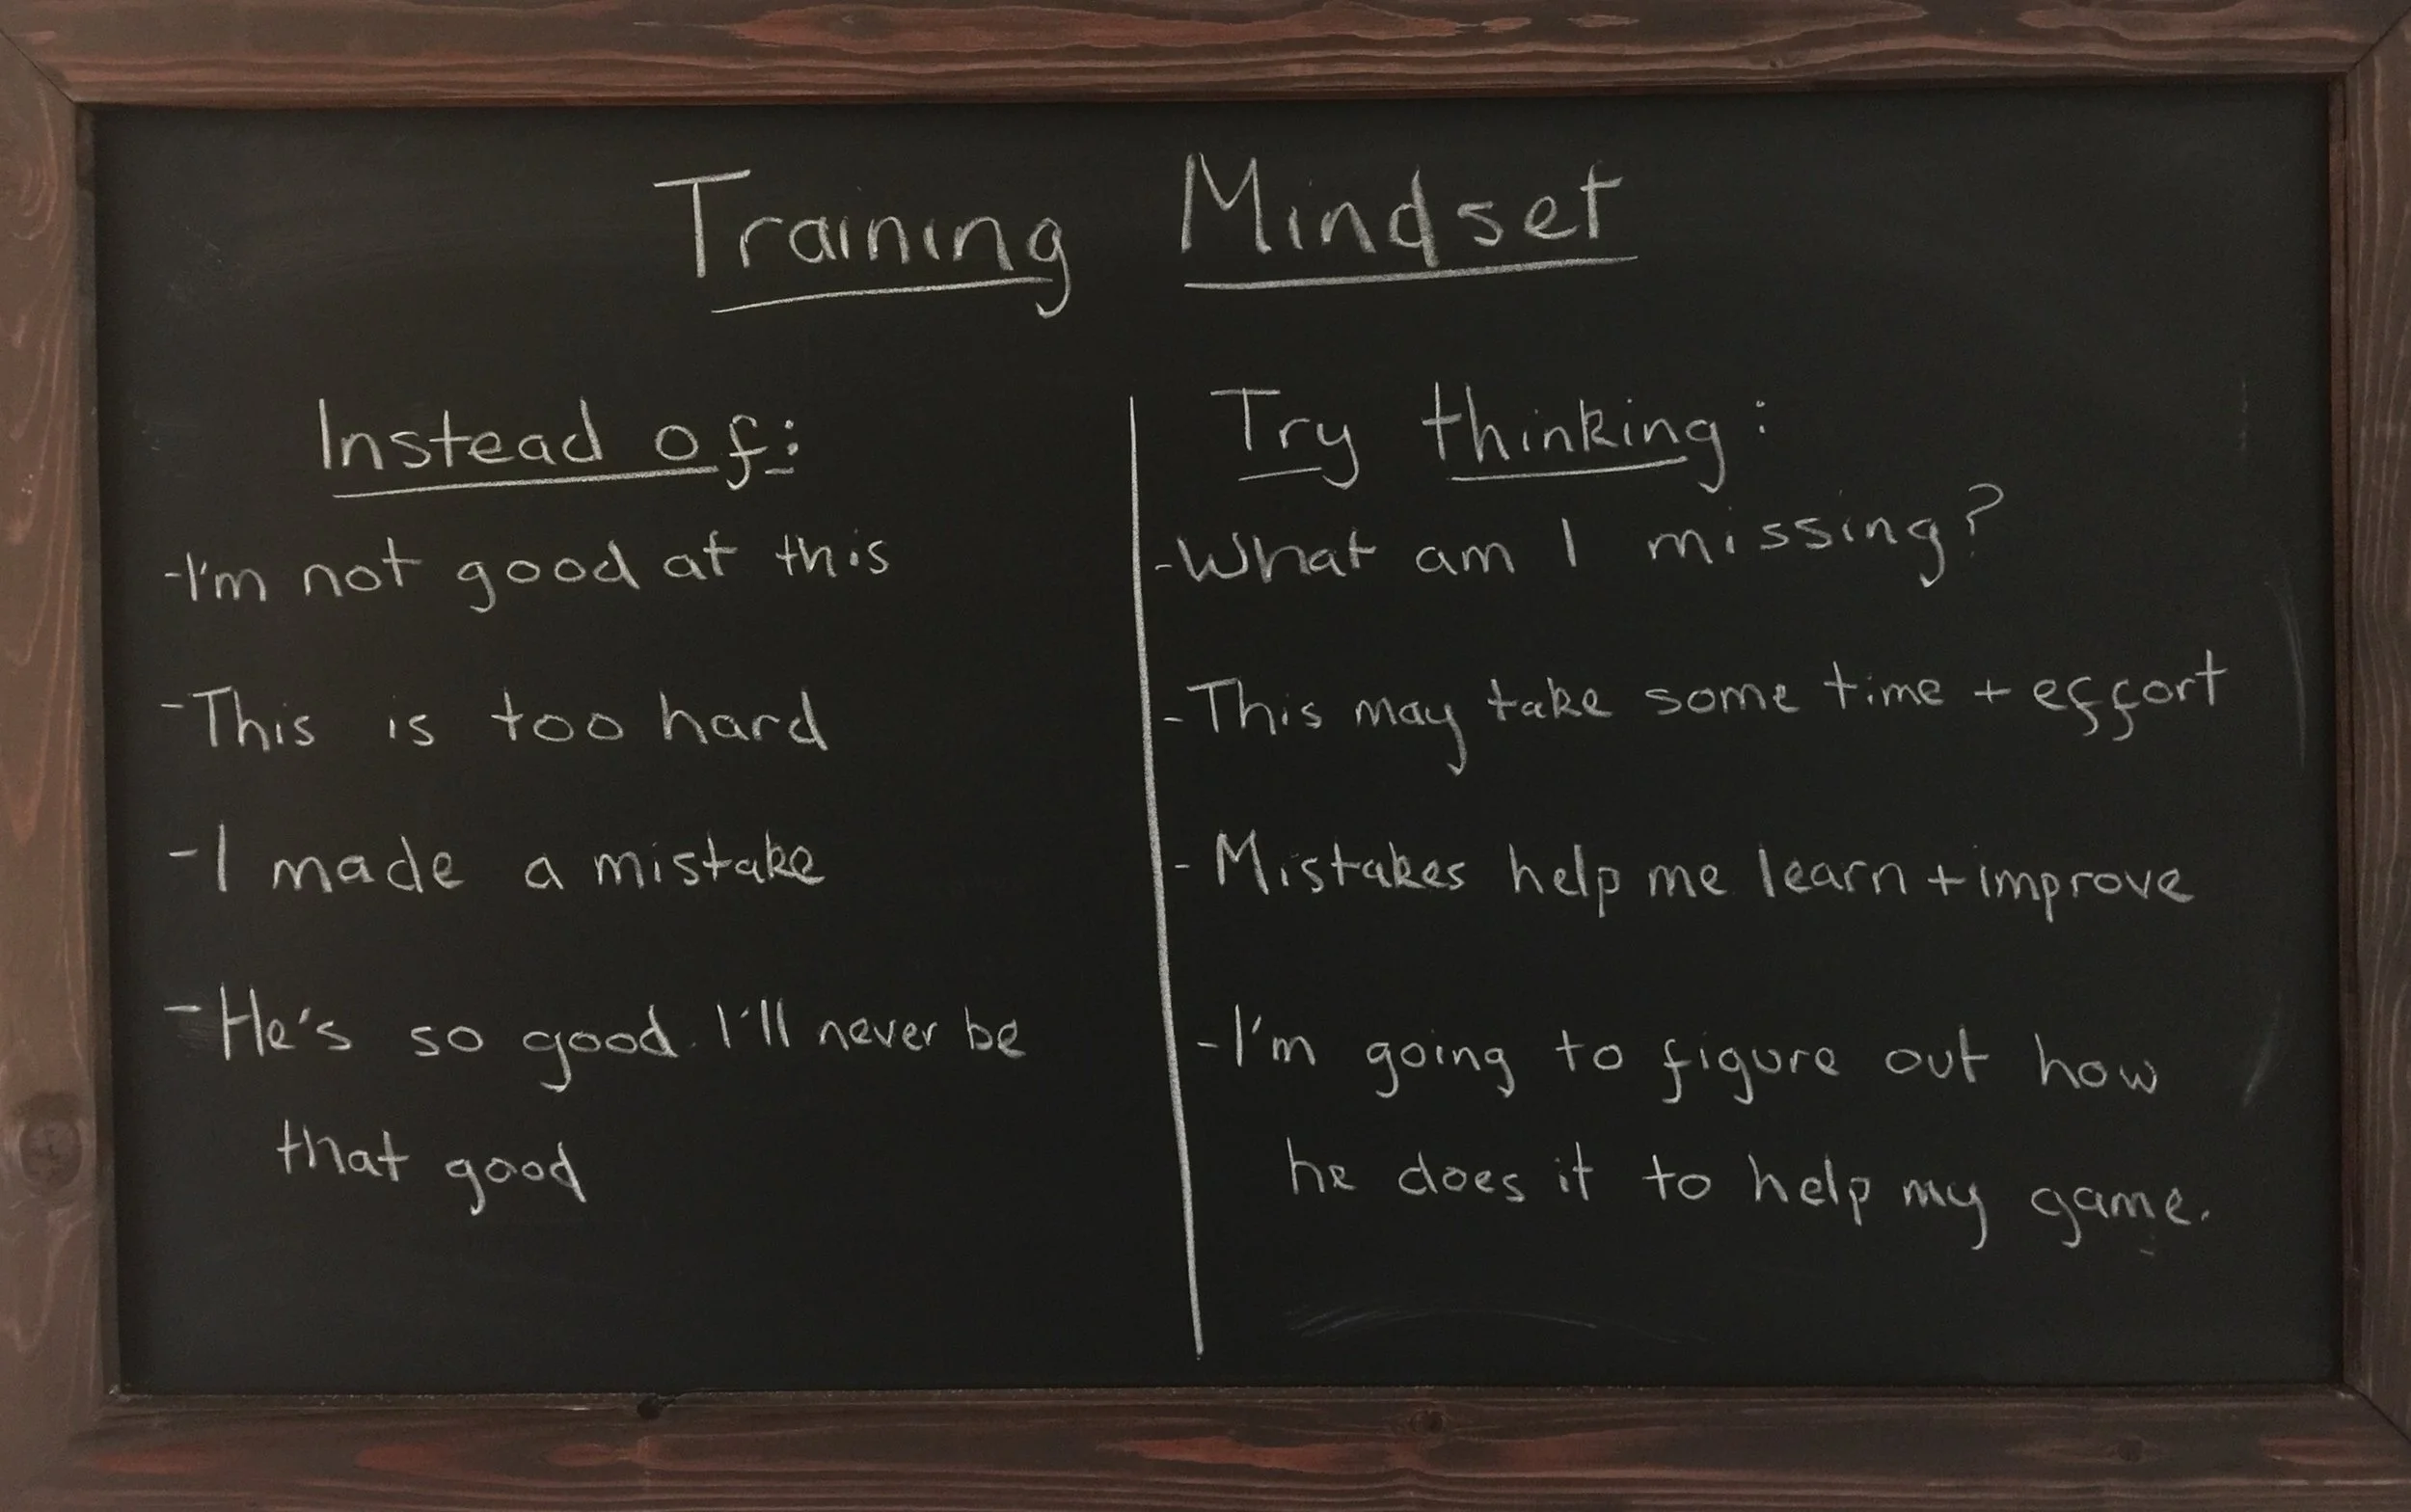 Training Mindset
Instead of:
-I'm not good at this
-This is too hard
-I made a mistake
-He's so good. I'll never be
that good
Try thinking:
-What am I missing?
-This may take some time + effort
- Mistakes help me learn + improve
-I'm going to figure out how
he does it to help my game.